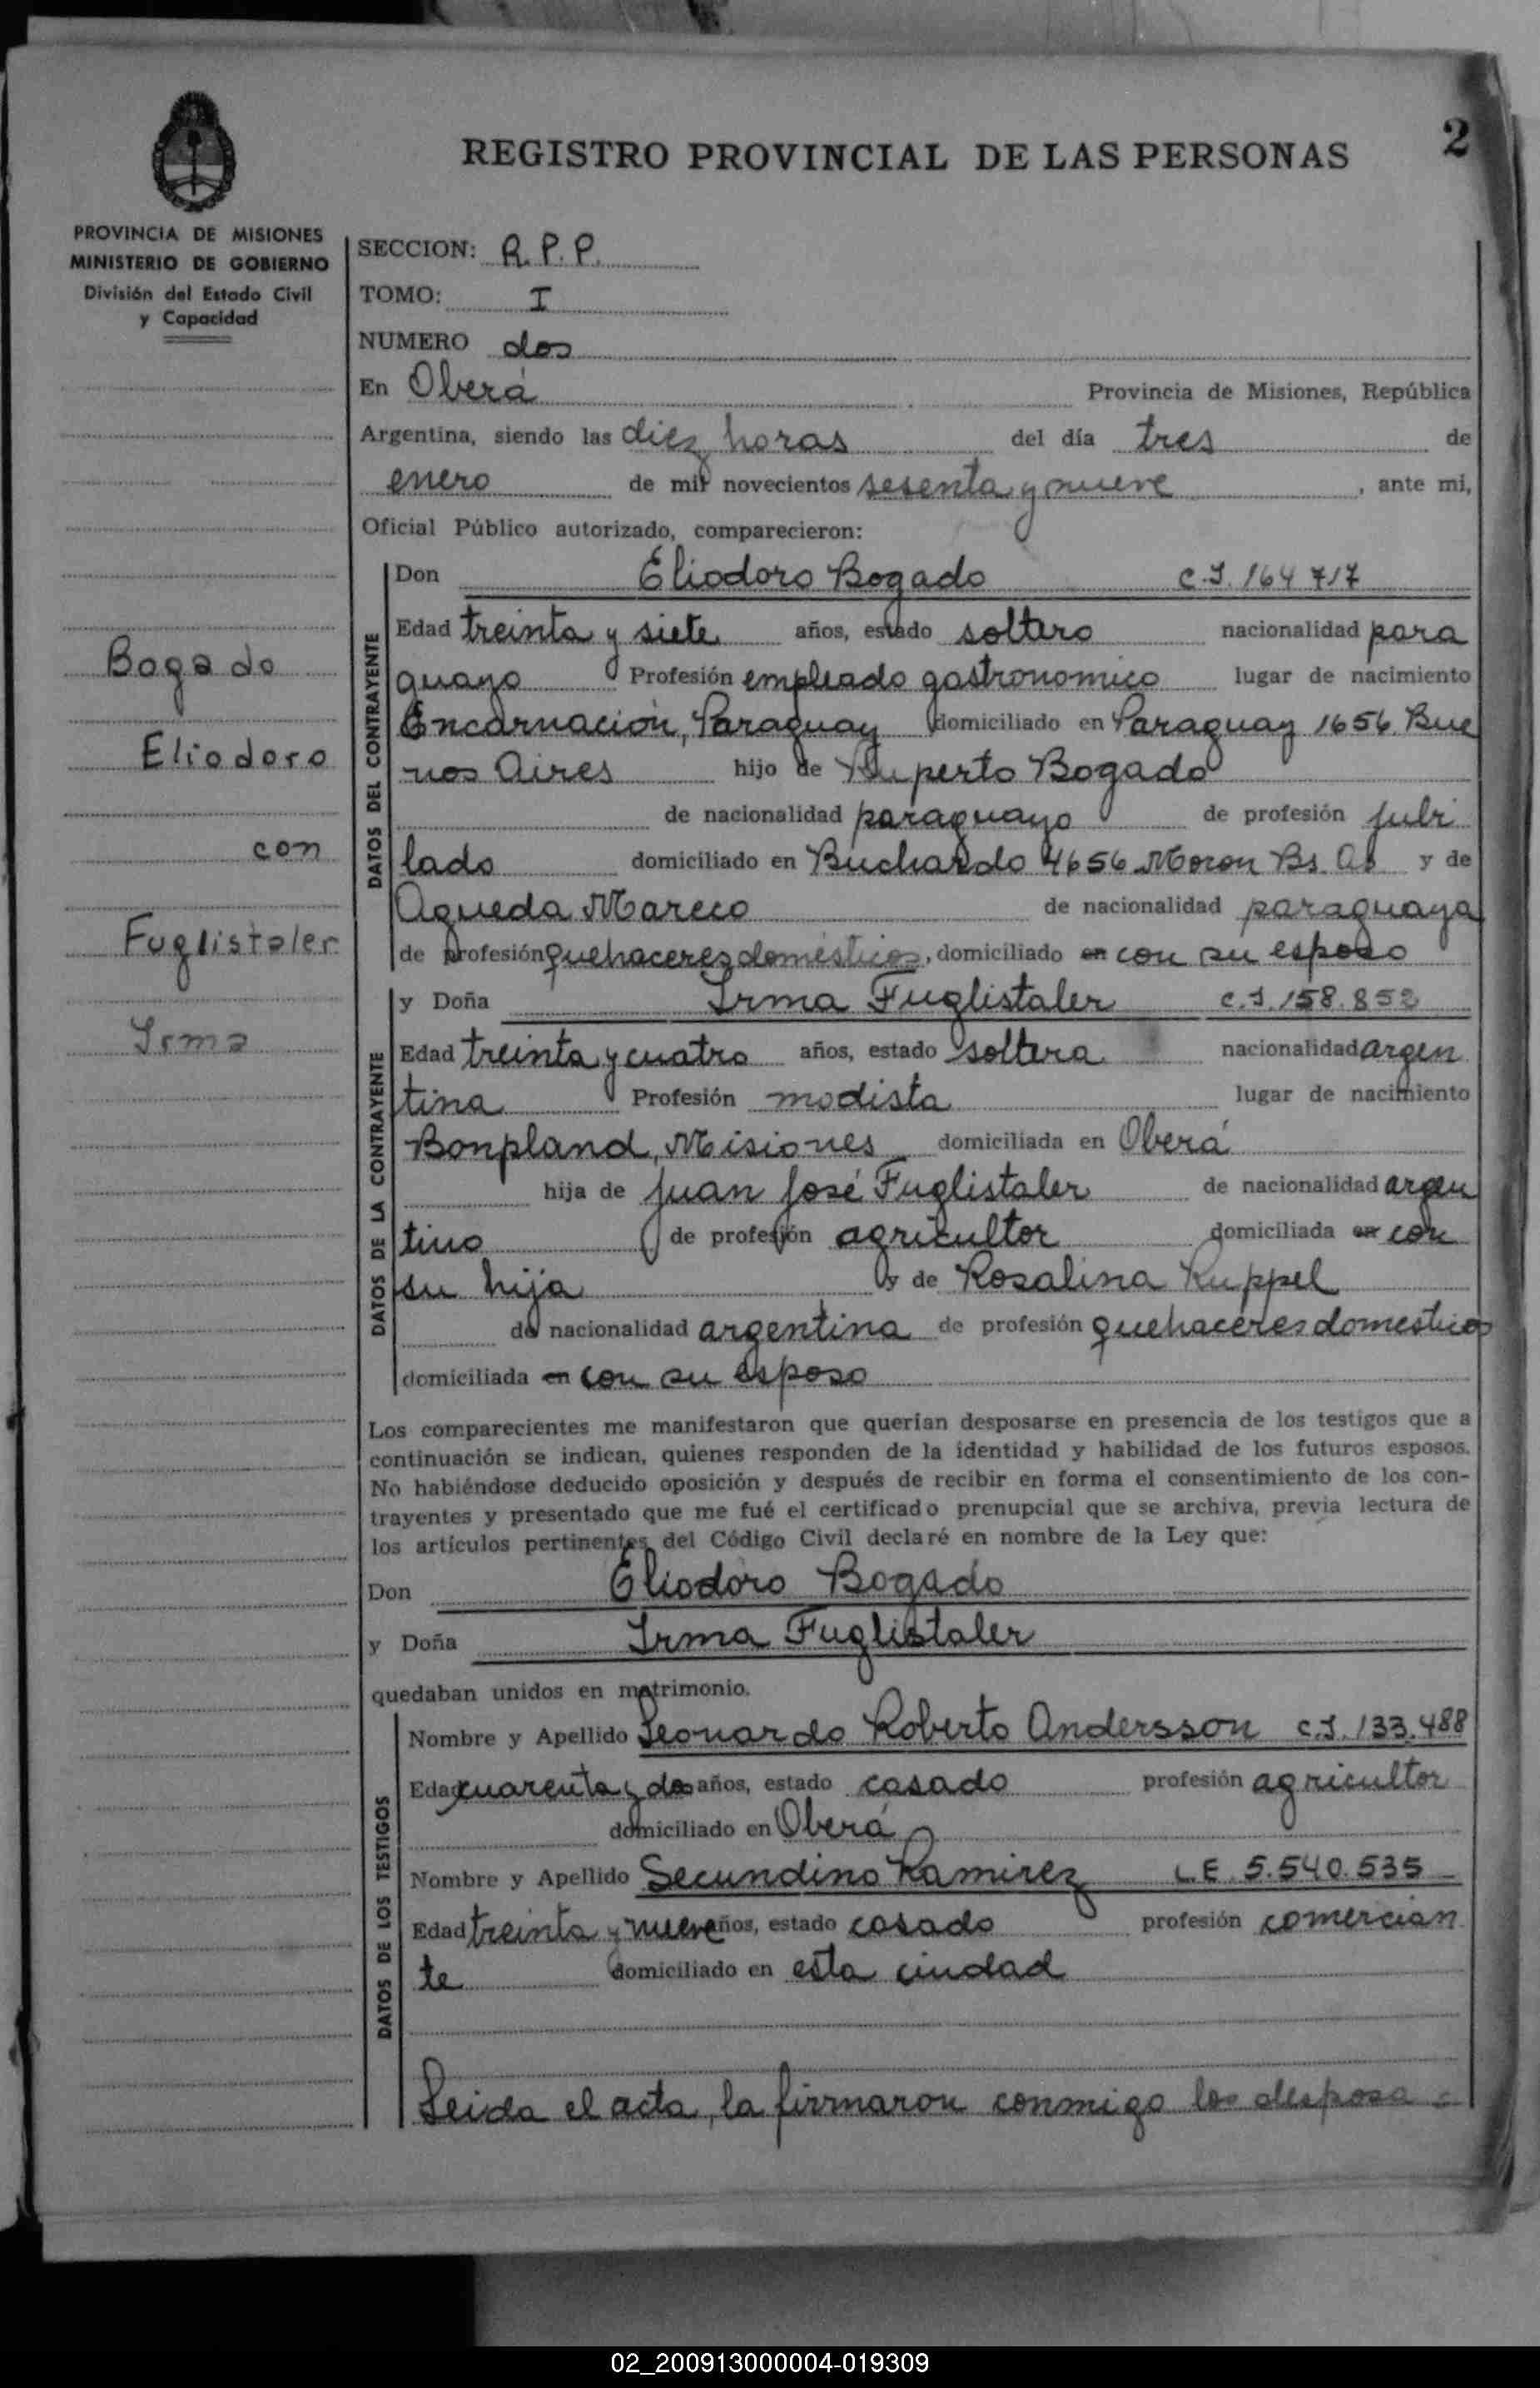 2
REGISTRO PROVINCIAL DE LAS PERSONAS
PROVINCIA DE MISIONES
MINISTERIO DE GOBIERNO
División del Estado Civil
y Capacidad
Bogado
Eliodoro
con
Fuglistaler
Irma
SECCION: R. P. P.
TOMO: I
NUMERO dos
En Oberá Provincia de Misiones, República
Argentina, siendo las diez horas del día tres de
enero de mil novecientos sesenta y nueve, ante mi,
Oficial Público autorizado, comparecieron:
DATOS DEL CONTRAYENTE
Don Eliodoro Bogado C.I. 164 717
Edad treinta y siete años, estado soltero nacionalidad para
guayo Profesión empleado gastronomico lugar de nacimiento
Encarnación, Paraguay domiciliado en Paraguay 1656 Bue
nos Aires hijo de Ruperto Bogado
de nacionalidad paraguayo de profesión jubi
lado domiciliado en Buchardo 4656 Moron Bs. As y de
Agueda Mareco de nacionalidad paraguaya
de profesión quehaceres domésticos, domiciliado en con su esposo
DATOS DE LA CONTRAYENTE
y Doña Irma Fuglistaler C.I. 158.852
Edad treinta y cuatro años, estado soltera nacionalidad argen
tina Profesión modista lugar de nacimiento
Bonpland, Misiones domiciliada en Oberá
hija de Juan José Fuglistaler de nacionalidad argen
tino de profesión agricultor domiciliada en con
su hija y de Rosalina Kuppel
de nacionalidad argentina de profesión quehaceres domesticos
domiciliada en con su esposo
Los comparecientes me manifestaron que querían desposarse en presencia de los testigos que a
continuación se indican, quienes responden de la identidad y habilidad de los futuros esposos.
No habiéndose deducido oposición y después de recibir en forma el consentimiento de los con-
trayentes y presentado que me fué el certificado prenupcial que se archiva, previa lectura de
los artículos pertinentes del Código Civil declaré en nombre de la Ley que:
Don Eliodoro Bogado
y Doña Irma Fuglistaler
quedaban unidos en matrimonio.
DATOS DE LOS TESTIGOS
Nombre y Apellido Leonardo Roberto Andersson C.I. 133.488
Edad cuarenta y dos años, estado casado profesión agricultor
domiciliado en Oberá
Nombre y Apellido Secundino Ramirez L.E. 5.540.535
Edad treinta y nueve años, estado casado profesión comercian
te domiciliado en esta ciudad
Leida el acta, la firmaron conmigo los desposa =
02_200913000004-019309